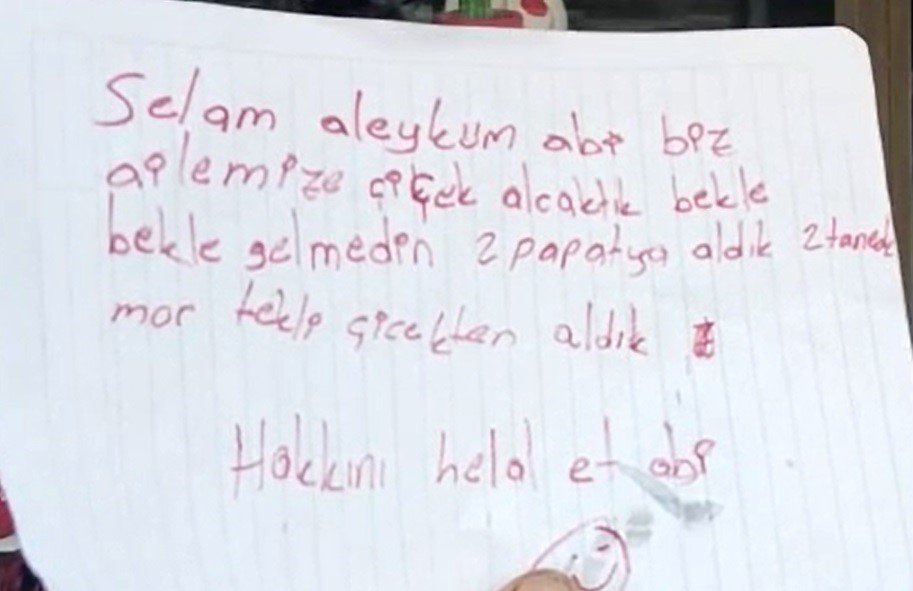 Selam aleykum abi biz
ailemize çiçek alcaktık bekle
bekle gelmedin 2 papatya aldık 2 tanede
mor tekli çicekten aldık
Hakkını helal et abi